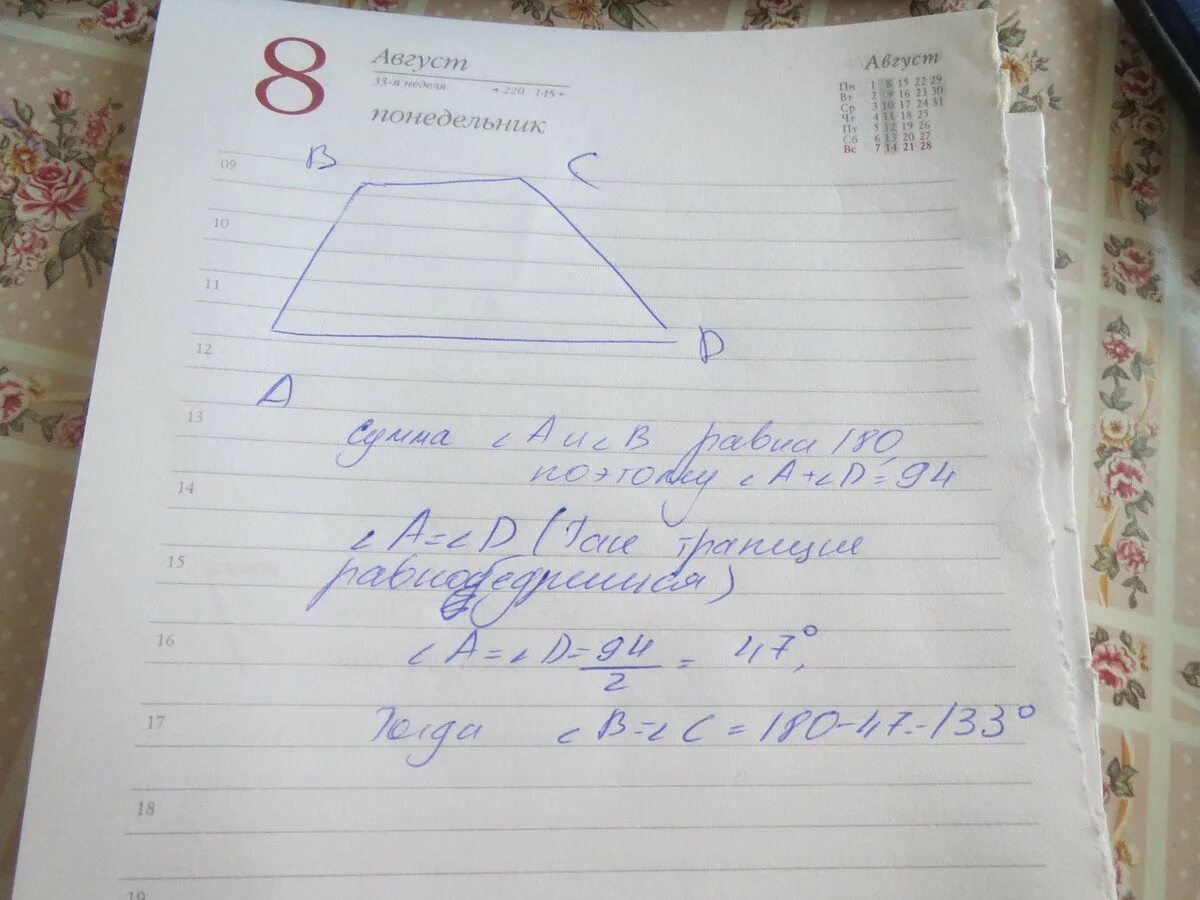 8
Август
33-я неделя
220 145
понедельник
Август
Пн 1 8 15 22 29
Вт 2 9 16 23 30
Ср 3 10 17 24 31
Чт 4 11 18 25
Пт 5 12 19 26
Сб 6 13 20 27
Вс 7 14 21 28
09
B C
10
11
12
D
A
13
сумма ∠A и ∠B равна 180,
поэтому ∠A+∠D=94
14
∠A=∠D (Так трапеция
15
равнобедренная)
16
∠A=∠D=94/2 = 47°,
17
Тогда ∠B=∠C=180-47=133°
18
19